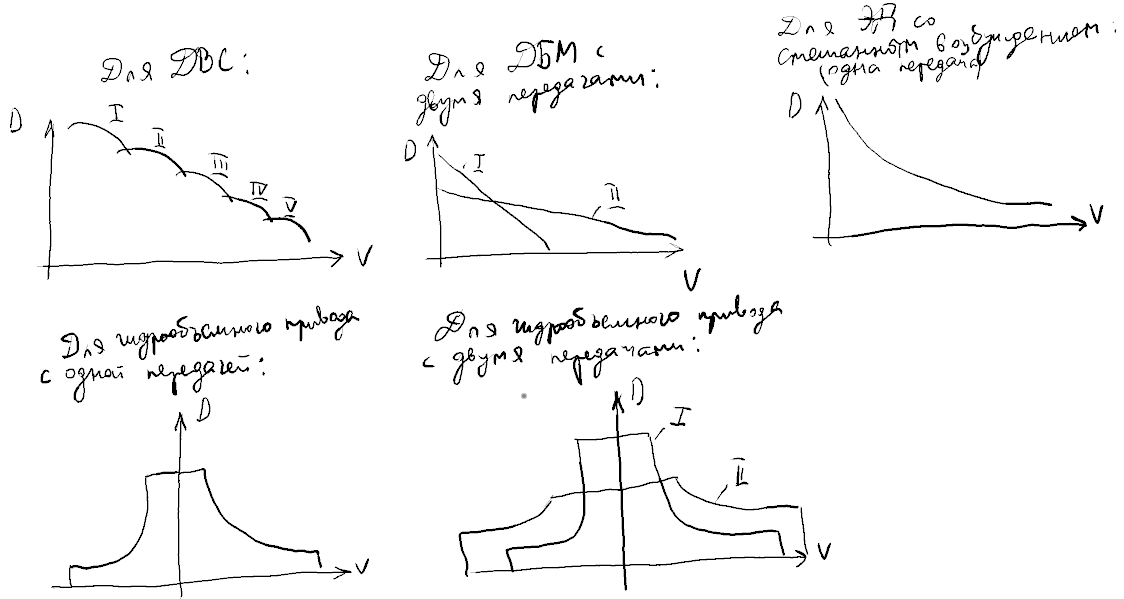 Для ДВС:
D
I
II
III
IV
V
V
Для ДБМ с
двумя передачами:
D
I
II
V
Для ЭД со
смешанным возбуждением:
(одна передача)
D
V
Для гидрообъемного привода
с одной передачей:
D
V
Для гидрообъемного привода
с двумя передачами:
D
I
II
V